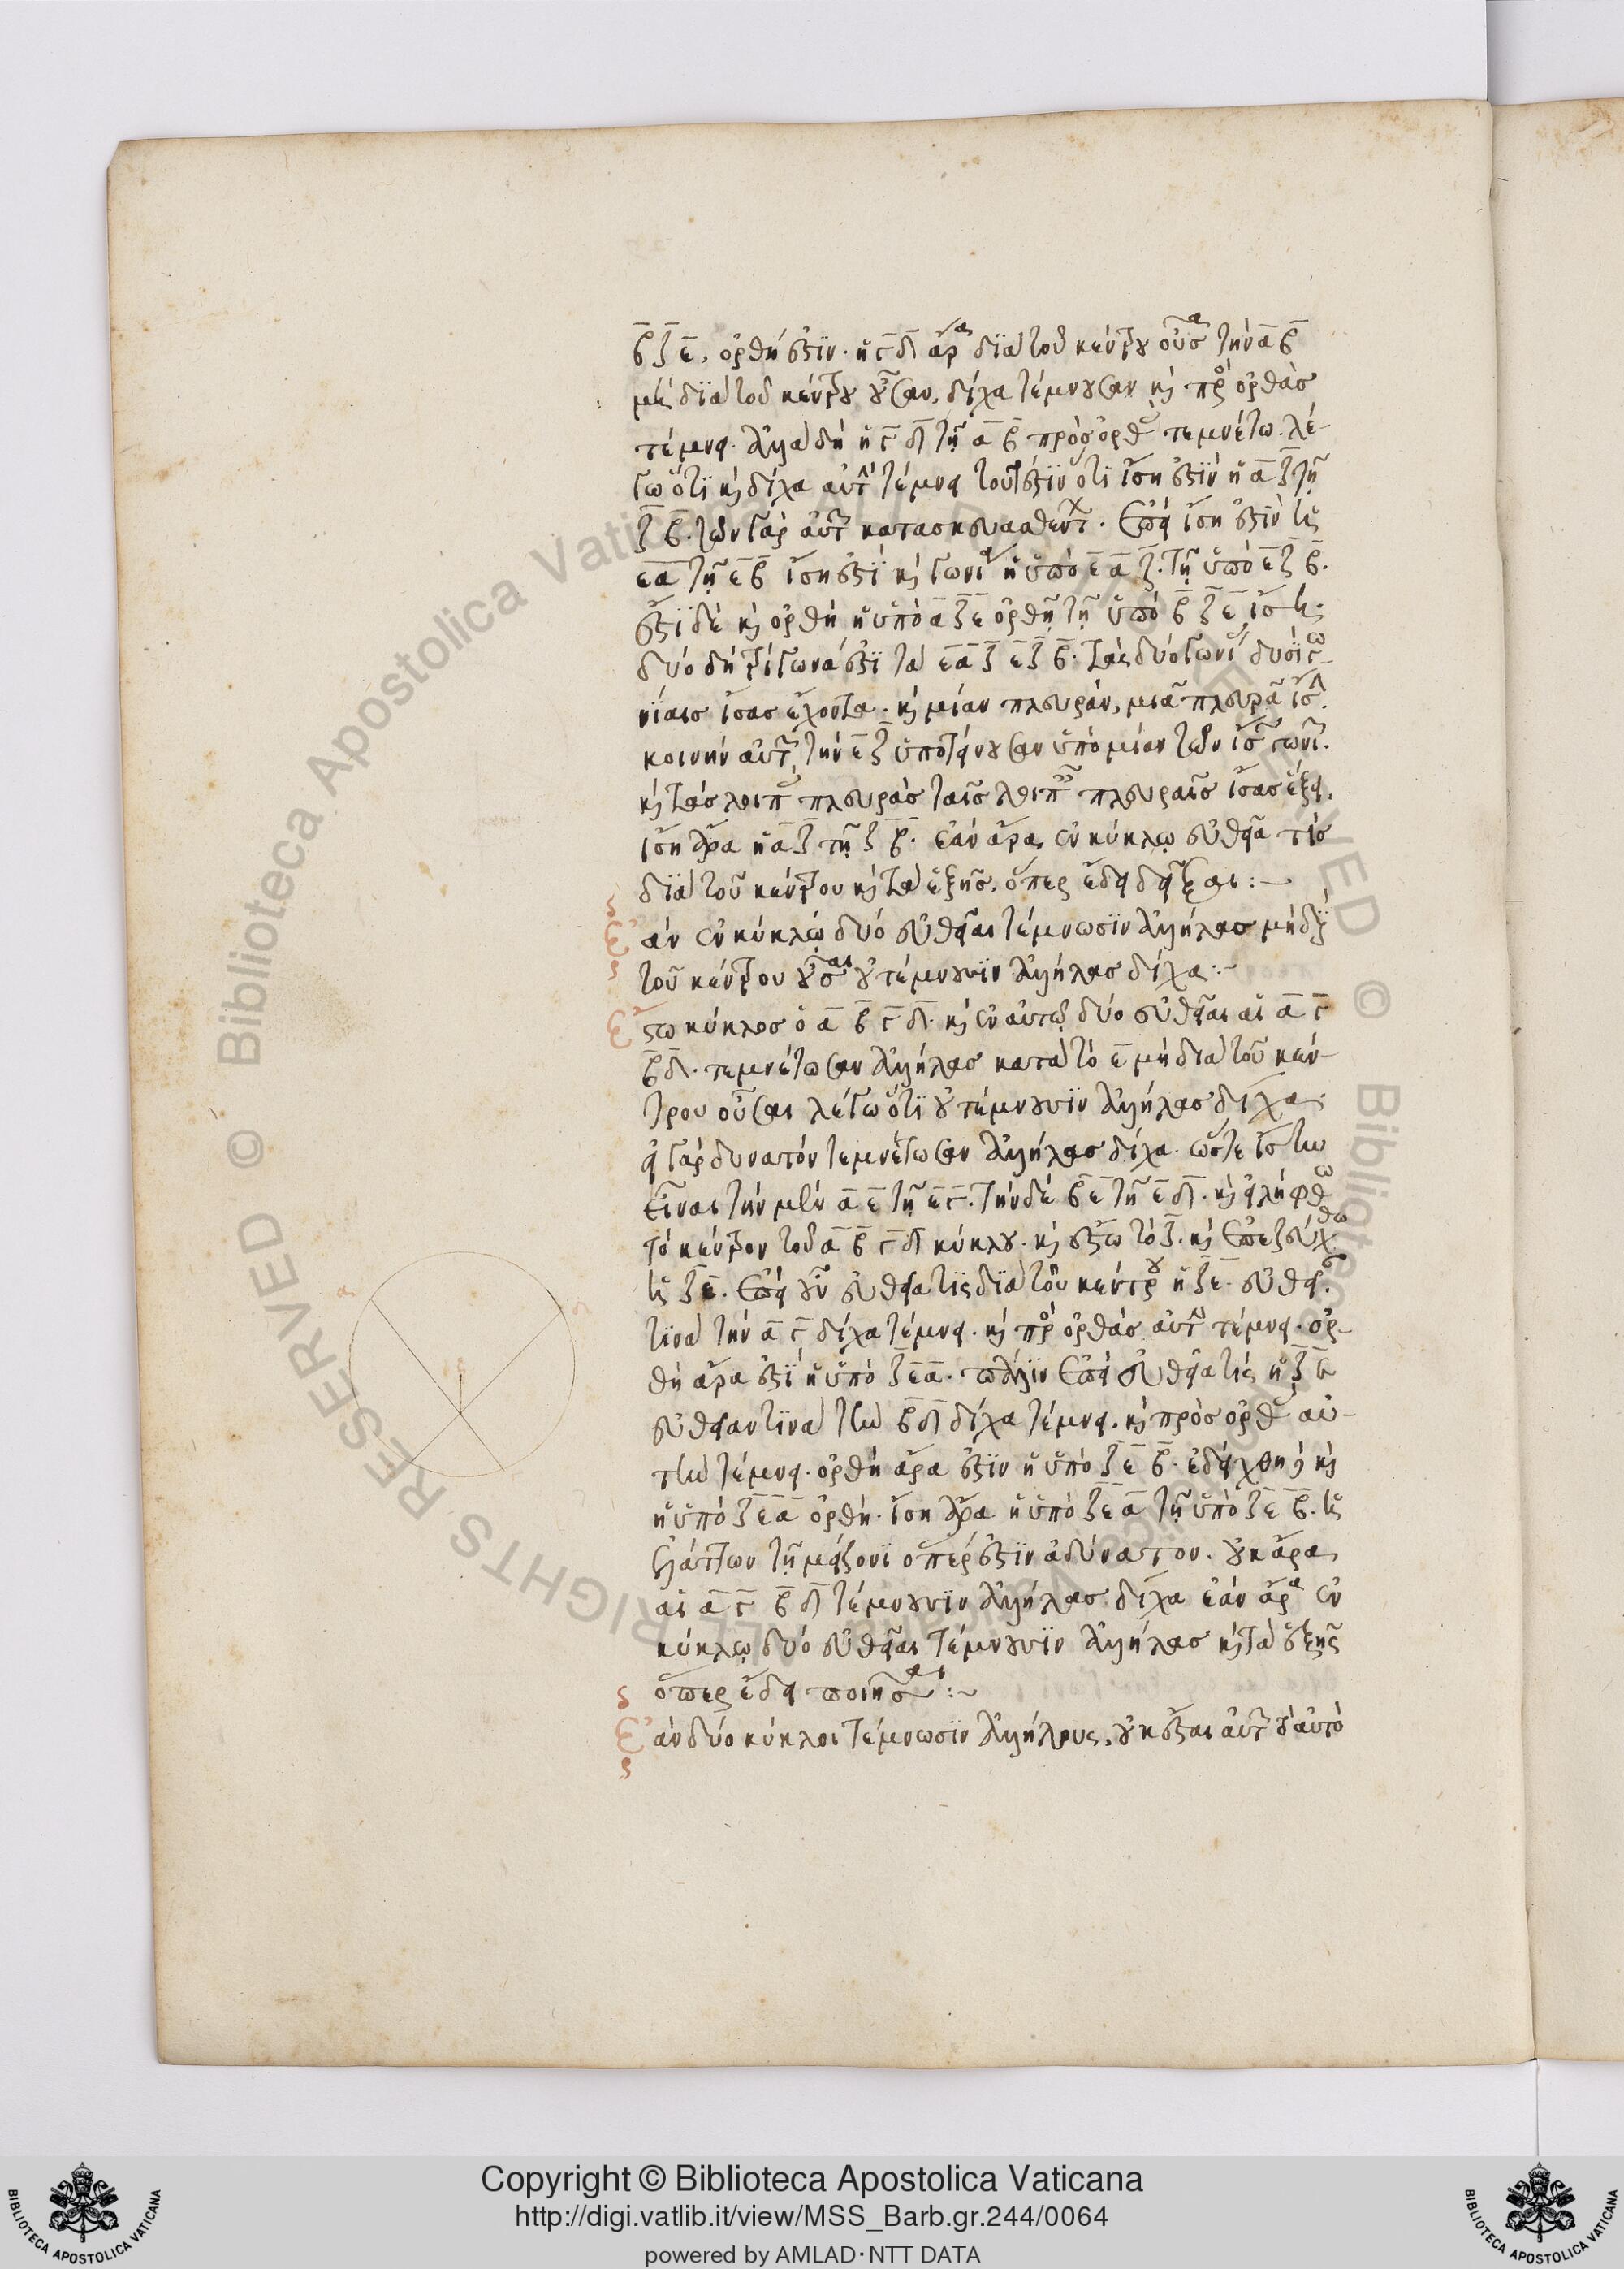 β ζ ε, ὀρθή ἐστϊν· ἡ γ δ ἄρα δϊὰ τοῦ κέντρου οὖσα τὴν α β
μὲ δϊὰ τοῦ κέντρου οὖσαν, δίχα τέμνουσαν καὶ πρὸς ὀρθὰσ
τέμνει. ἀλλὰ δὴ ἡ γ δ τῇ α β πρὸς ὀρθ τεμνέτω. λέ-
γω ὅτϊ καὶ δίχα αὐτὴν τέμνει τοῦτέστϊν ὅτϊ ἴση ἐστϊν ἡ α ζ τῇ
ζ β. τῶν γὰρ αὐτῶν κατασκευασθέντ. ἐπεὶ ἴση ἐστϊν ἡ
εα τῇ ε β ἴση ἐστϊ καὶ γωνία ἡ ὑπὸ ε α ζ. τῇ ὑπὸ ε ζ β.
ἔστϊ δὲ καὶ ὀρθὴ ἡ ὑπὸ α ζ ε ὀρθῇ τῇ ὑπὸ β ζ ε ἴση.
δύο δὴ τρίγωνά ἐστϊ τὰ εα ζ ε ζ β. τὰς δύο γωνί δυσϊ γω-
νϊαισ ἴσασ ἔχοντα. καὶ μίαν πλευράν, μιᾷ πλευρᾷ ἴσην.
κοινὴν αὐτῶν τὴν ε ζ ὑποτείνουσαν ὑπὸ μίαν τῶν ἴσων γωνϊ.
καὶ τὰσ λοιπ πλευρὰσ ταῖσ λοιπ πλευραῖσ ἴσασ ἕξει.
ἴση ἄρα ἡ α ζ τῇ ζ β. ἐὰν ἄρα, ἐν κύκλῳ εὐθεῖα τὶσ
δϊὰ τοῦ κέντρου καὶ τὰ ἑξῆσ. ὅπερ ἔδει δεῖξαι :-
Ἐὰν ἐν κύκλῳ δύο εὐθεῖαι τέμνωσϊν ἀλλήλασ μὴ δϊὰ
τοῦ κέντρου οὖσαι οὐ τέμνουσϊν ἀλλήλασ δίχα :-
Ἔστω κύκλοσ ὁ α β γ δ. καὶ ἐν αὐτῷ δύο εὐθεῖαι αἱ α γ
β δ. τεμνέτωσαν ἀλλήλασ κατὰ τὸ ε μὴ διὰ τοῦ κέν-
τρου οὖσαι λέγω ὅτϊ οὐ τέμνουσϊν ἀλλήλασ δίχα.
εἰ γὰρ δυνατὸν τεμνέτωσαν ἀλλήλασ δίχα. ὥστε ἴσην
εἶναι τὴν μὲν α ε τῇ ε γ. τὴν δὲ β ε τῇ ε δ. καὶ εἰλήφθω
τὸ κέντρον τοῦ α β γ δ κύκλου. καὶ ἔστω τὸ ζ. καὶ ἐπεζεύχθω
ἡ ζ ε. ἐπεὶ οὖν εὐθεῖα τὶς δϊὰ τοῦ κέντρου ἡ ζ ε. εὐθεῖ
τϊνὰ τὴν α γ δίχα τέμνει. καὶ πρὸς ὀρθὰσ αὐτὴν τέμνει. ὀρ-
θὴ ἄρα ἐστϊ ἡ ὑπὸ ζ ε α. πάλϊν ἐπεὶ εὐθεῖα τὶς ἡ ζ ε
εὐθεῖαν τϊνὰ τὴν β δ δίχα τέμνει. καὶ πρὸσ ὀρθ αὐ-
τὴν τέμνει. ὀρθὴ ἄρα ἐστϊν ἡ ὑπὸ ζ ε β. ἐδείχθη δὲ καὶ
ἡ ὑπὸ ζ ε α ὀρθή. ἴση ἄρα ἡ ὑπὸ ζ ε α τῇ ὑπὸ ζ ε β. ἡ
ἐλάττων τῇ μείζονϊ ὅπέρ ἐστϊν ἀδύνατον. οὐκ ἄρα
αἱ α γ β δ τέμνουσϊν ἀλλήλασ δίχα ἐὰν ἄρα ἐν
κύκλῳ δύο εὐθεῖαι τέμνουσϊν ἀλλήλασ καὶ τὰ ἑξῆς
ὅπερ ἔδει ποιῆσαι :~
Ἐὰν δύο κύκλοι τέμνωσϊν ἀλλήλους, οὐκ ἔσται αὐτῶν τὸ αὐτὸ
© Biblioteca Apostolica Vaticana ALL RIGHTS RESERVED
Copyright © Biblioteca Apostolica Vaticana
http://digi.vatlib.it/view/MSS_Barb.gr.244/0064
powered by AMLAD·NTT DATA
BIBLIOTECA APOSTOLICA VATICANA
BIBLIOTECA APOSTOLICA VATICANA